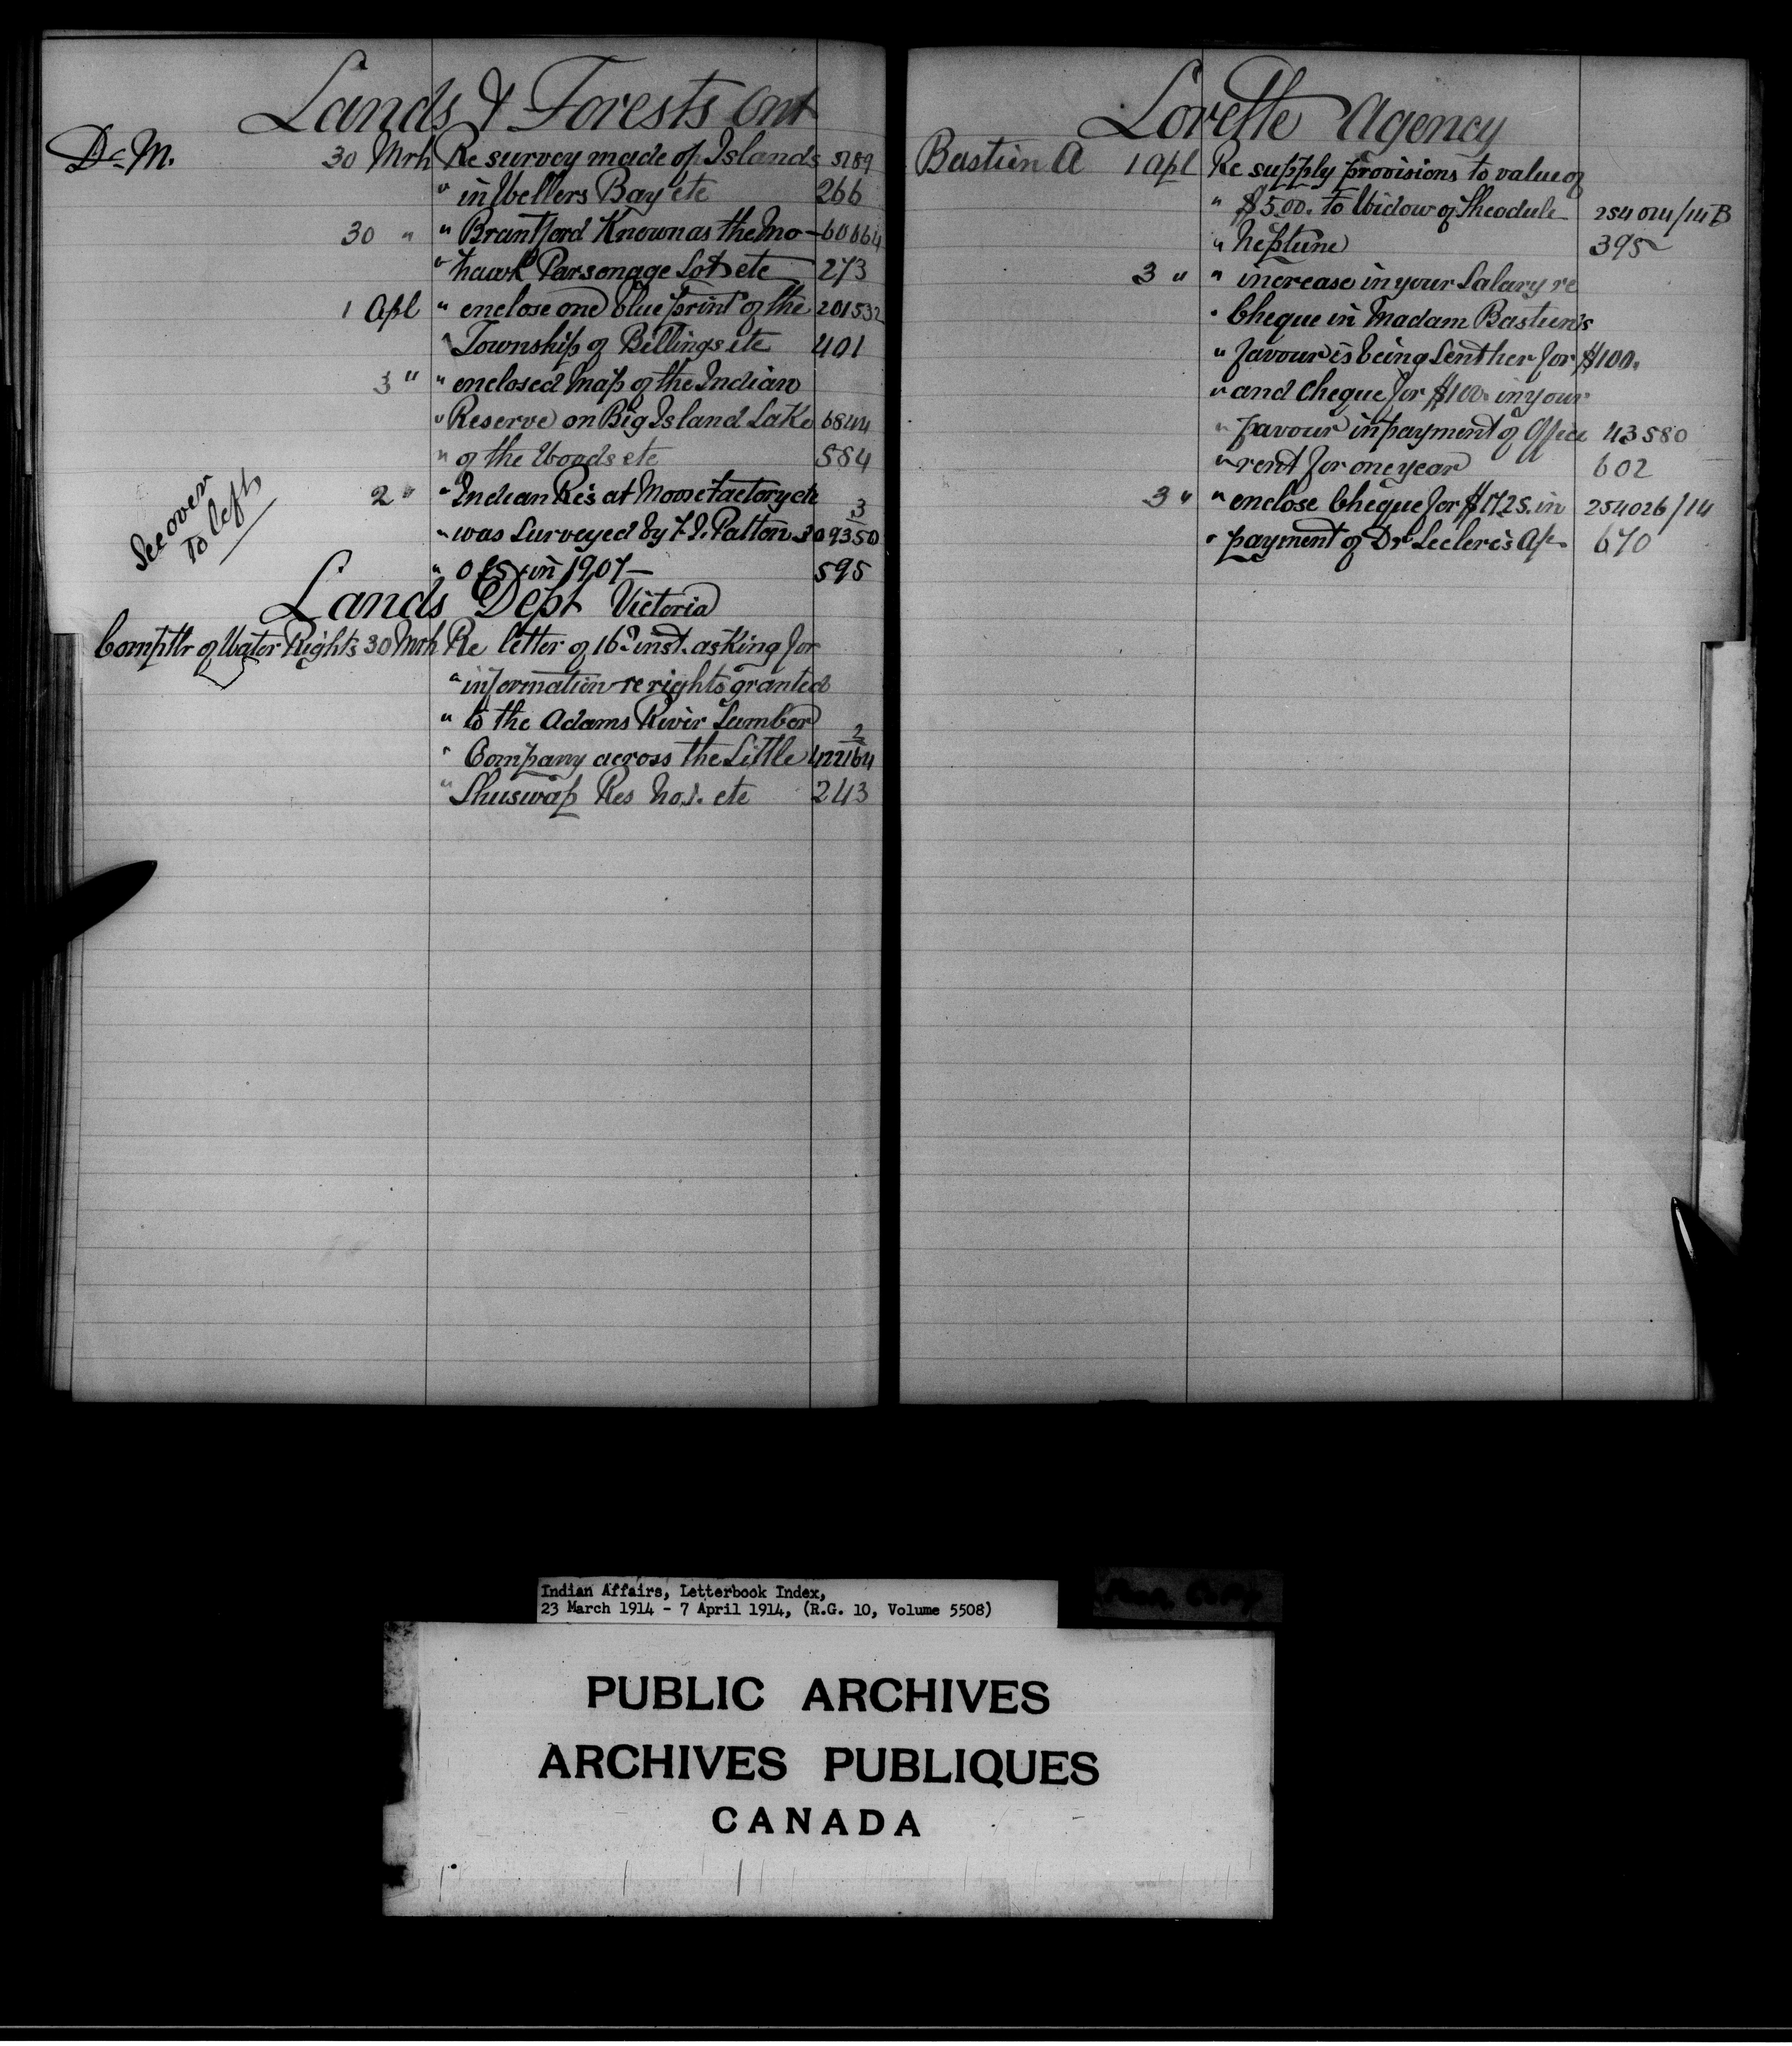 Lands & Forests Ont
D.M. 30 Mrh Re survey made of Islands 5189
" in Wellers Bay etc 266
30 " " Brantford Known as the Mo- 60664
" hawk Parsonage Lot etc 273
1 Apl " enclose one blue print of the 201532
" Township of Billings etc 401
3 " " enclosed map of the Indian
" Reserve on Big Island Lake 6844
" of the Woods etc 584
2 " " Indian Res at Moose Factory etc 3
" was surveyed by F.J. Patton 309350
" O L S in 1907 — 595
See over
to left
Lands Dept Victoria
Comptlr of Water Rights 30 Mrh Re letter of 16th inst. asking for
" information re rights granted
" to the Adams River Lumber 2
" Company across the Little 422164
" Shuswap Res No. 1. etc 243
Lorette Agency
Bastien A 1 Apl Re supply provisions to value of
" $5.00. to Widow of Theodule 254014/14B
" Neptune 395
3 " " increase in your Salary re
" Cheque in Madam Bastien's
" favour is being sent her for $100.
" and cheque for $100. in your
" favour in payment of Office 43580
" rent for one year 602
3 " " enclose Cheque for $17.25. in 254026/14
" payment of Dr Leclerc's A/c. 670
Indian Affairs, Letterbook Index,
23 March 1914 - 7 April 1914, (R.G. 10, Volume 5508)
PUBLIC ARCHIVES
ARCHIVES PUBLIQUES
CANADA